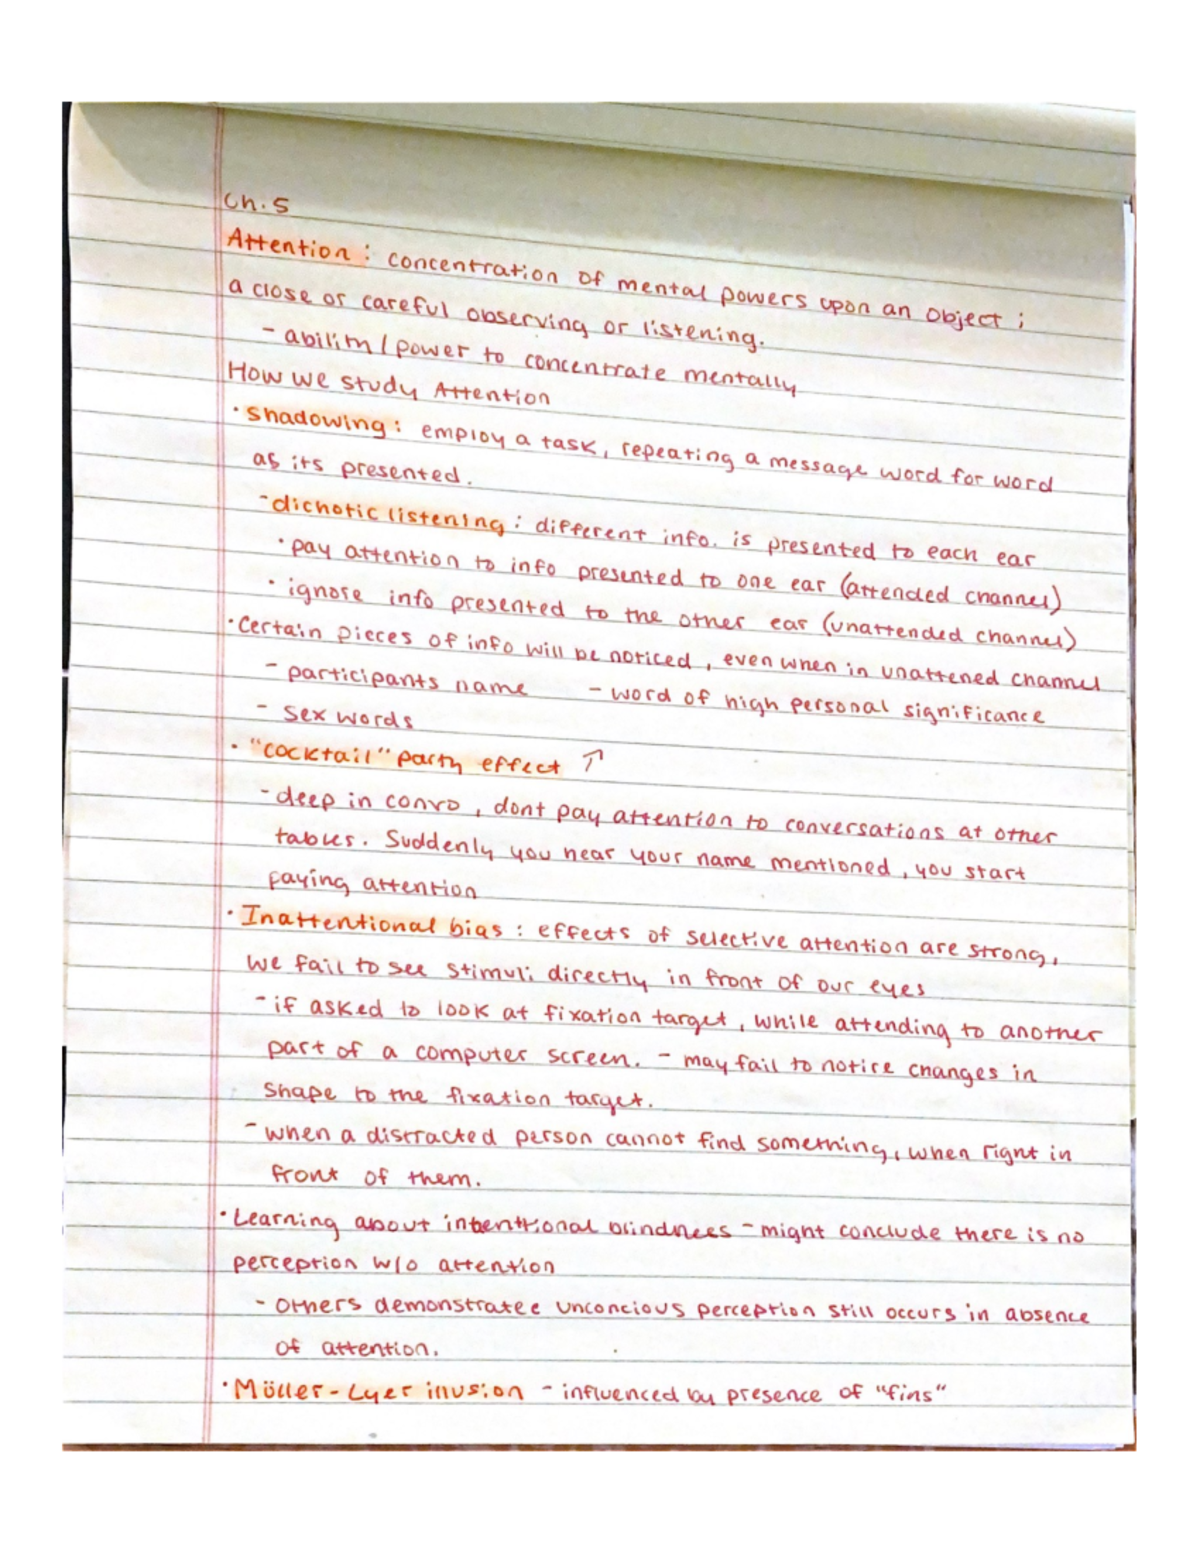 Ch. 5
Attention : concentration of mental powers upon an object ;
a close or careful observing or listening.
- ability / power to concentrate mentally
How we study Attention
• Shadowing : employ a task, repeating a message word for word
as its presented.
- dichotic listening : different info. is presented to each ear
• pay attention to info presented to one ear (attended channel)
• ignore info presented to the other ear (unattended channel)
• Certain pieces of info will be noticed, even when in unattened channel
- participants name - word of high personal significance
- sex words
• "cocktail" party effect ↑
- deep in convo, dont pay attention to conversations at other
tables. Suddenly you hear your name mentioned, you start
paying attention
• Inattentional bias : effects of selective attention are strong,
we fail to see stimuli directly in front of our eyes
- if asked to look at fixation target, while attending to another
part of a computer screen. - may fail to notice changes in
shape to the fixation target.
- when a distracted person cannot find something, when right in
front of them.
• Learning about intentional blindness - might conclude there is no
perception w/o attention
- others demonstratee unconcious perception still occurs in absence
of attention.
• Müller-Lyer illusion - influenced by presence of "fins"